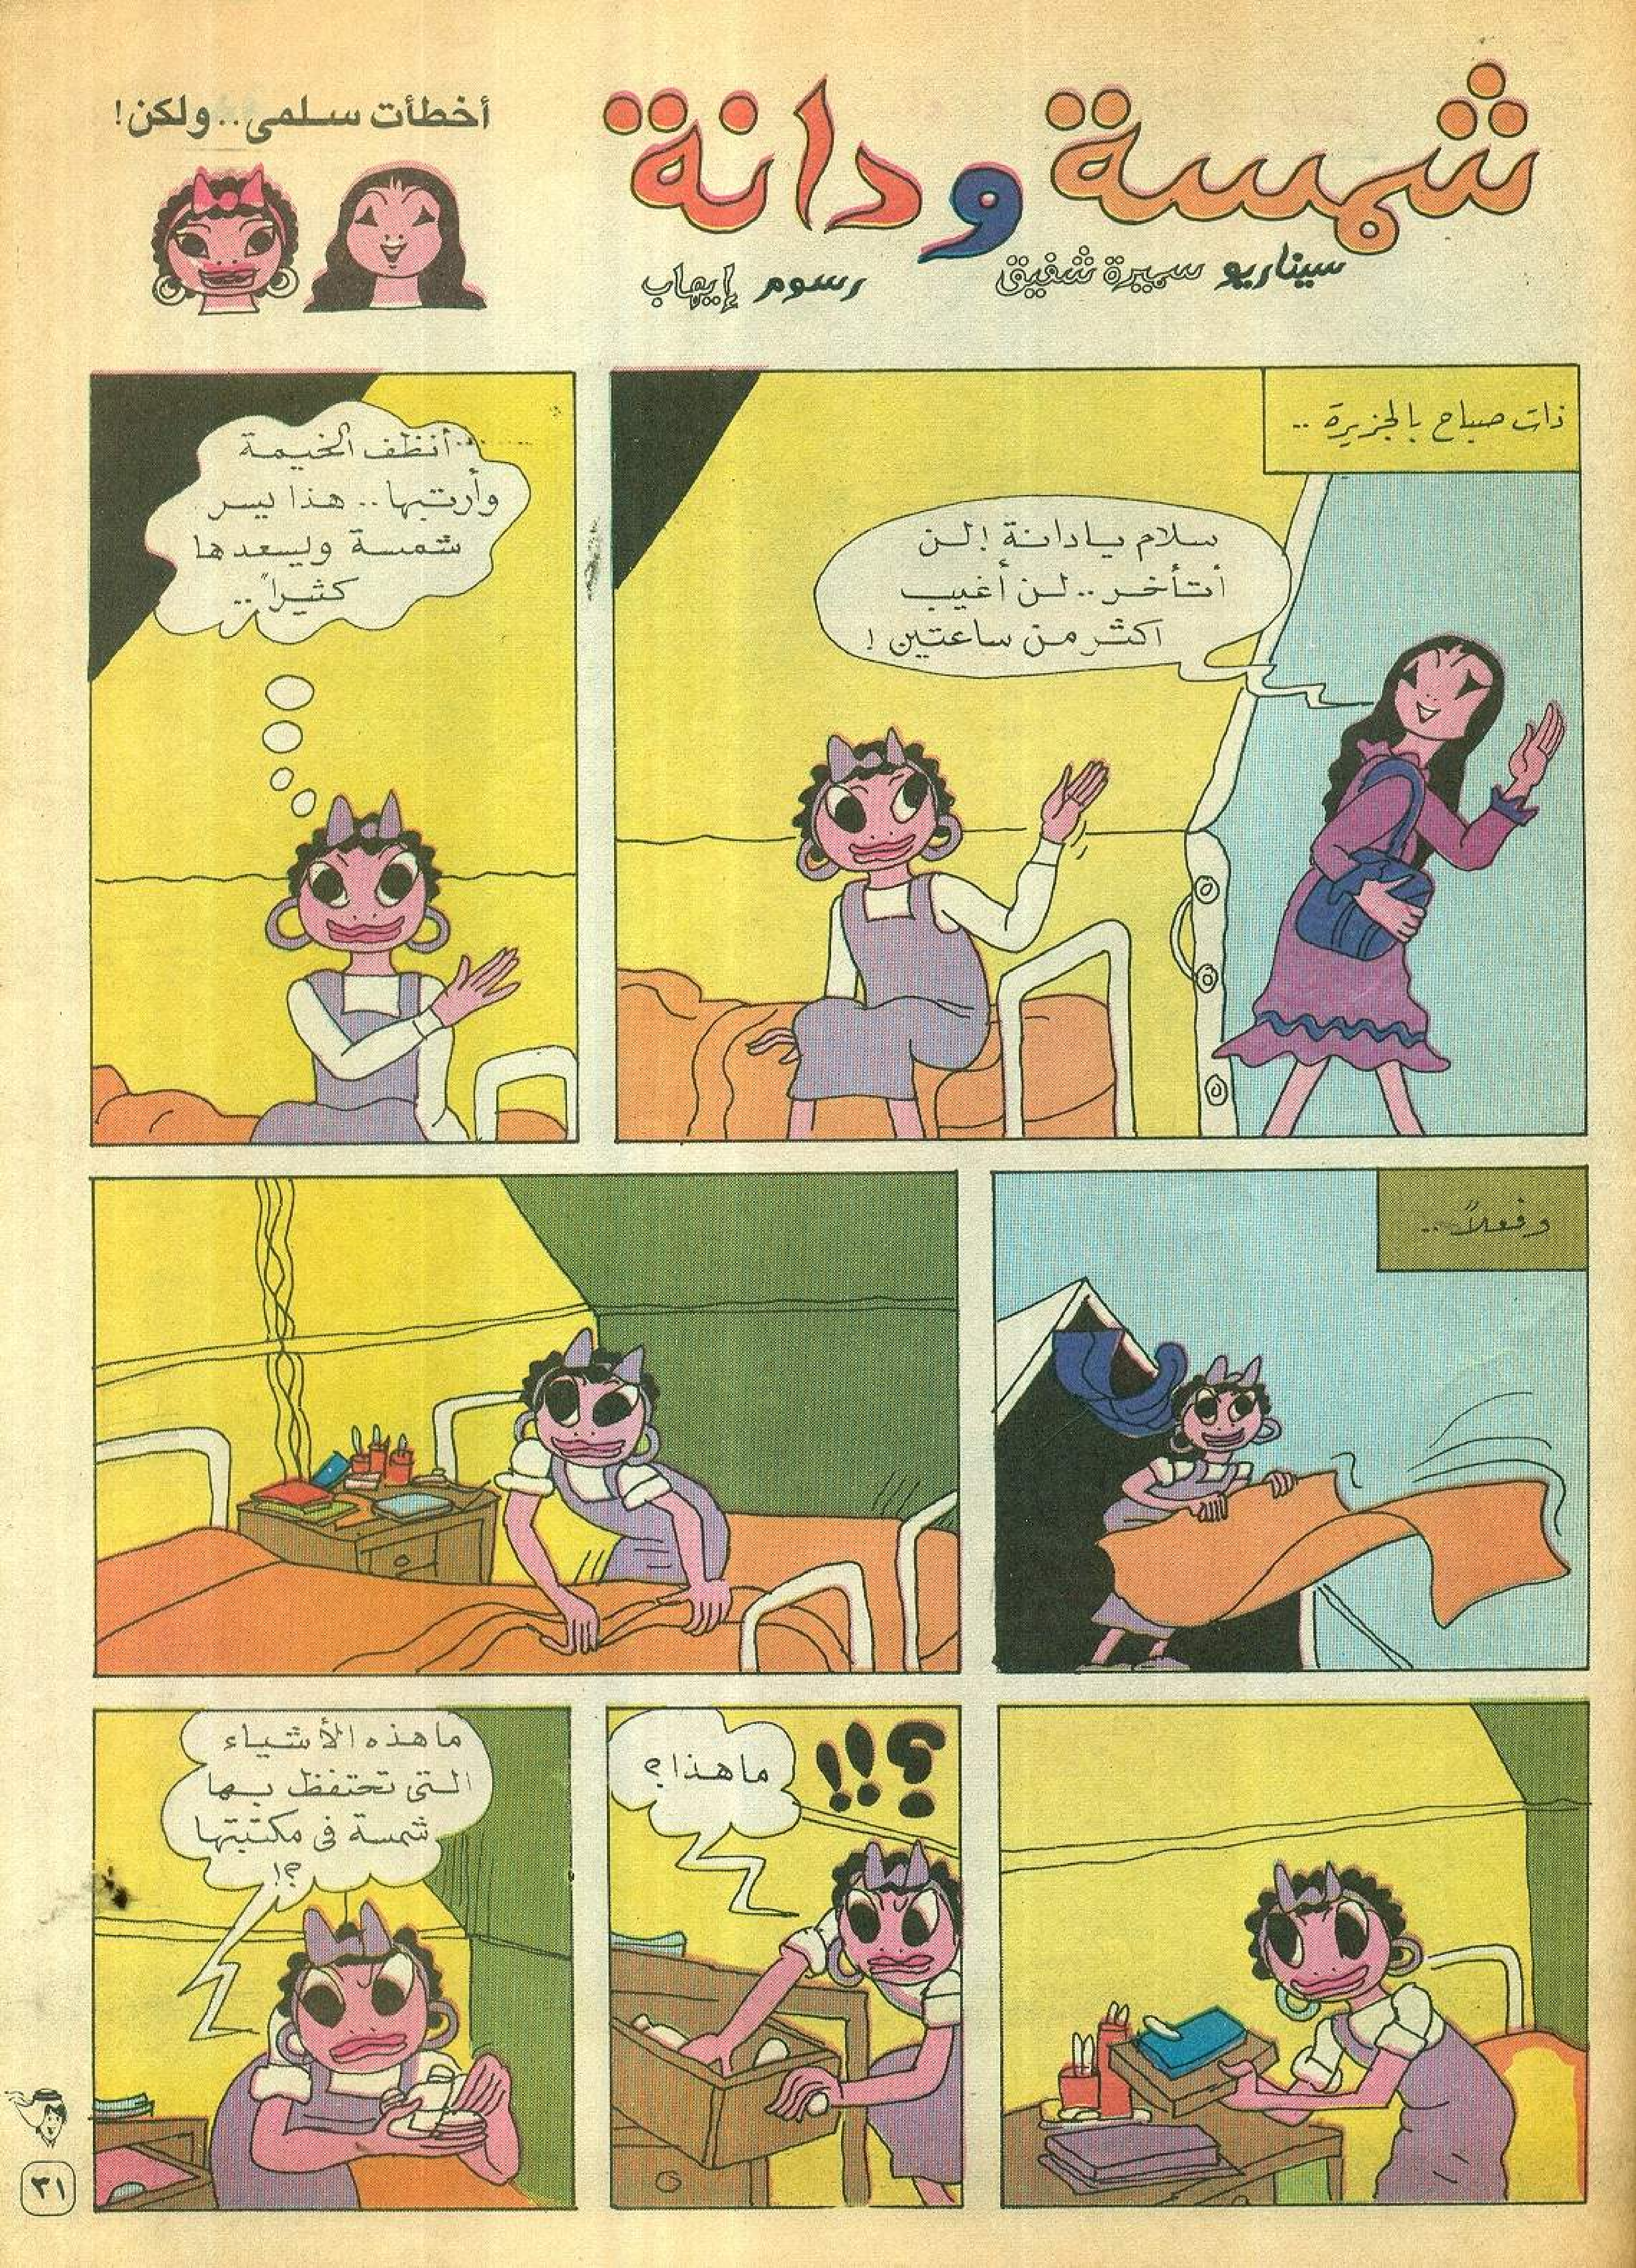 شمسة ودانة
سيناريو سميرة شفيق
رسوم إيهاب
أخطأت سلمى.. ولكن!
ذات صباح بالجزيرة ..
سلام يا دانة ! لن
أتأخر .. لن أغيب
اكثر من ساعتين !
أنظف الخيمة
وأرتبها .. هذا يسر
شمسة ويسعدها
كثيراً ..
وفعلاً ..
؟!!
ما هذا ؟
ما هذه الأشياء
التى تحتفظ بها
شمسة فى مكتبتها
؟!
٣١